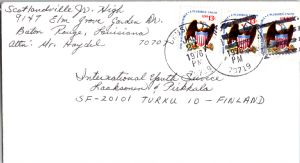 Scotlandville Jr. High
9147 Elm Grove Garden Dr.
Baton Rouge, Louisiana
Attn: Mr. Haydel 70707
PM
70719
International Youth Service
Lacksonen & Pirkkala
SF-20101 TURKU 10 - FINLAND